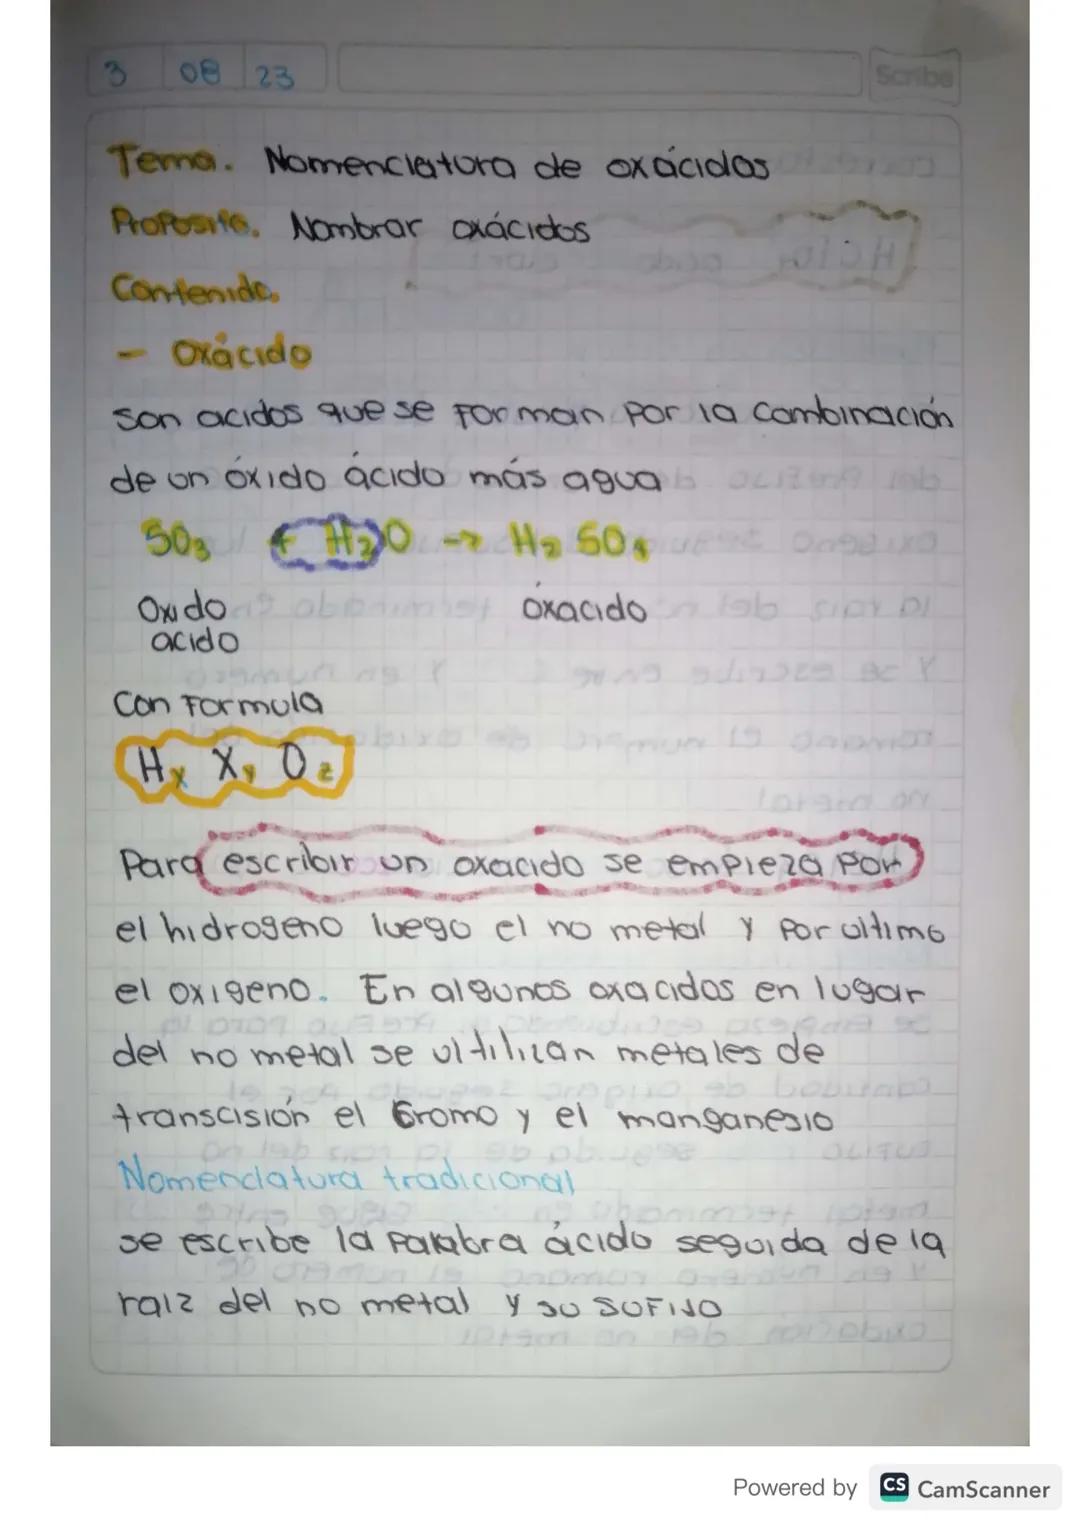 3 08 23
Scribe
Tema. Nomenclatura de oxácidos
Proposito. Nombrar oxácidos
Contenido.
- Oxácido
Son acidos que se forman por la combinación
de un óxido ácido más agua
SO3 + H2O -> H2 SO4
Oxido oxacido
acido
Con Formula
Hx Xy Oz
Para escribir un oxacido se empieza por
el hidrogeno luego el no metal y por ultimo
el oxigeno. En algunos oxacidos en lugar
del no metal se ultilizan metales de
transcisión el Cromo y el manganesio
Nomenclatura tradicional
se escribe la palabra ácido seguida de la
raiz del no metal y su sufijo
Powered by CS CamScanner